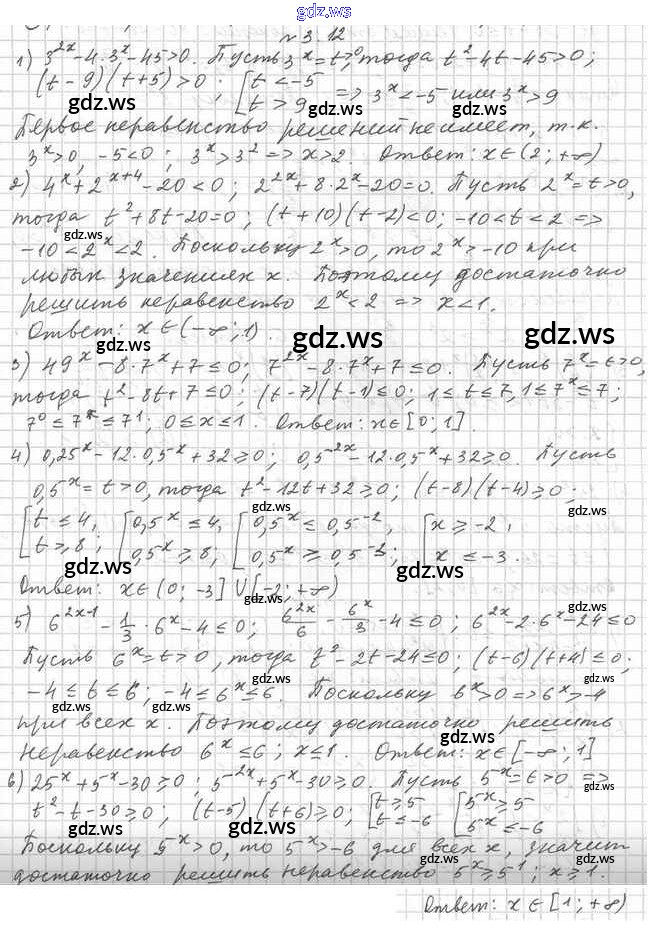 gdz.ws
№ 3.12
1) 3^{2x} - 4·3^x - 45 > 0. Пусть 3^x = t > 0, тогда t² - 4t - 45 > 0;
(t - 9)(t + 5) > 0; [t < -5 t > 9 => 3^x < -5 или 3^x > 9
gdz.ws gdz.ws gdz.ws
Первое неравенство решений не имеет, т.к.
3^x > 0, -5 < 0; 3^x > 3² => x > 2. Ответ: x ∈ (2; +∞)
gdz.ws gdz.ws
2) 4^x + 2^{x+4} - 20 < 0; 2^{2x} + 8·2^x - 20 = 0. Пусть 2^x = t > 0,
тогда t² + 8t - 20 = 0; (t + 10)(t - 2) < 0; -10 < t < 2 =>
gdz.ws
-10 < 2^x < 2. Поскольку 2^x > 0, то 2^x > -10 при
любых значениях x. Поэтому достаточно
решить неравенство 2^x < 2 => x < 1.
Ответ: x ∈ (-∞; 1).
gdz.ws gdz.ws
3) 49^x - 8·7^x + 7 ≤ 0; 7^{2x} - 8·7^x + 7 ≤ 0. Пусть 7^x = t > 0,
тогда t² - 8t + 7 ≤ 0; (t - 7)(t - 1) ≤ 0; 1 ≤ t ≤ 7, 1 ≤ 7^x ≤ 7;
7^0 ≤ 7^x ≤ 7^1; 0 ≤ x ≤ 1. Ответ: x ∈ [0; 1].
gdz.ws
4) 0,25^x - 12·0,5^x + 32 ≥ 0; 0,5^{2x} - 12·0,5^x + 32 ≥ 0. Пусть
0,5^x = t > 0, тогда t² - 12t + 32 ≥ 0; (t - 8)(t - 4) ≥ 0;
gdz.ws
[t ≤ 4, t ≥ 8; [0,5^x ≤ 4, 0,5^x ≥ 8; [0,5^x ≤ 0,5^{-2}, 0,5^x ≥ 0,5^{-3}; [x ≥ -2, x ≤ -3.
gdz.ws gdz.ws
Ответ: x ∈ (0; -3] ∪ [-2; +∞)
gdz.ws gdz.ws
5) 6^{2x-1} - 1/3·6^x - 4 ≤ 0; 6^{2x}/6 - 6^x/3 - 4 ≤ 0; 6^{2x} - 2·6^x - 24 ≤ 0
Пусть 6^x = t > 0, тогда t² - 2t - 24 ≤ 0; (t - 6)(t + 4) ≤ 0;
gdz.ws gdz.ws
-4 ≤ t ≤ 6; -4 ≤ 6^x ≤ 6. Поскольку 6^x > 0 => 6^x > -4
при всех x. Поэтому достаточно решить
gdz.ws
неравенство 6^x ≤ 6; x ≤ 1. Ответ: x ∈ [-∞; 1]
gdz.ws gdz.ws
6) 25^x + 5^x - 30 ≥ 0; 5^{2x} + 5^x - 30 ≥ 0. Пусть 5^x = t > 0 =>
t² - t - 30 ≥ 0; (t - 5)(t + 6) ≥ 0; [t ≥ 5 t ≤ -6 [5^x ≥ 5 5^x ≤ -6
gdz.ws gdz.ws
Поскольку 5^x > 0, то 5^x > -6 для всех x, значит
gdz.ws gdz.ws
достаточно решить неравенство 5^x ≥ 5^1; x ≥ 1.
Ответ: x ∈ [1; +∞)